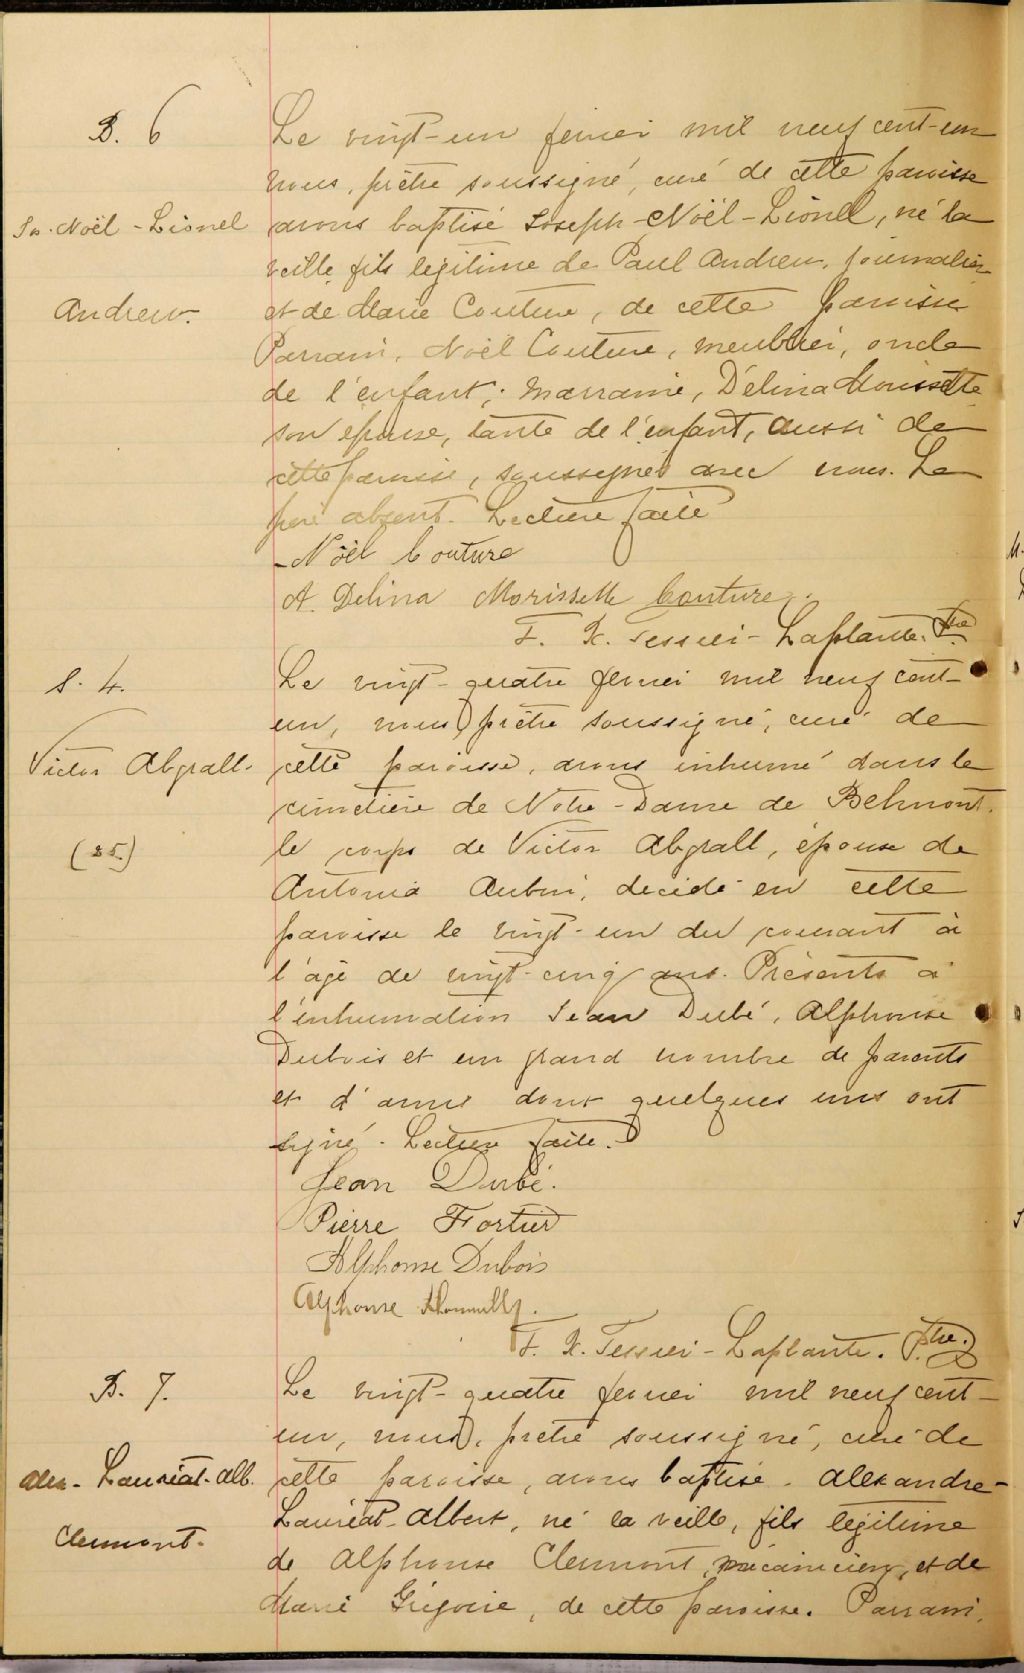 B. 6
Le vingt-un fevrier mil neuf cent-un
nous, prêtre soussigné, curé de cette paroisse
Js. Noël - Lionel
avons baptisé Joseph-Noël-Lionel, né la
veille, fils légitime de Paul Andrew, journalier
Andrew.
et de Marie Couture, de cette paroisse
Parrain, Noël Couture, meublier, oncle
de l'enfant; marraine, Délina Morissette
son épouse, tante de l'enfant, aussi de
cette paroisse, soussignés avec nous. Le
père absent. Lecture faite
Noël Couture
A. Delina Morissette Couture.
F. X. Tessier-Laplante. Ptre
S. 4.
Le vingt-quatre fevrier mil neuf cent-
un, nous, prêtre soussigné, curé de
Victor Abgrall.
cette paroisse, avons inhumé dans le
cimetière de Notre-Dame de Belmont.
(25.)
le corps de Victor Abgrall, épouse de
Antonia Aubin, décédé en cette
paroisse le vingt-un du courant à
l'age de vingt-cinq ans. Présents à
l'inhumation Jean Dubé, Alphonse
Dubois et un grand nombre de parents
et d'amis dont quelques uns ont
signé. Lecture faite.
Jean Dubé.
Pierre Fortier
Alphonse Dubois
Alphonse
F. X. Tessier-Laplante. Ptre.
B. 7.
Le vingt-quatre fevrier mil neuf cent-
un, nous, prêtre soussigné, curé de
Alex- Lauréat-Alb.
cette paroisse, avons baptisé Alexandre-
Lauréat-Albert, né la veille, fils légitime
Clermont.
de Alphonse Clermont, mécanicien, et de
Marie Grégoire, de cette paroisse. Parrain,